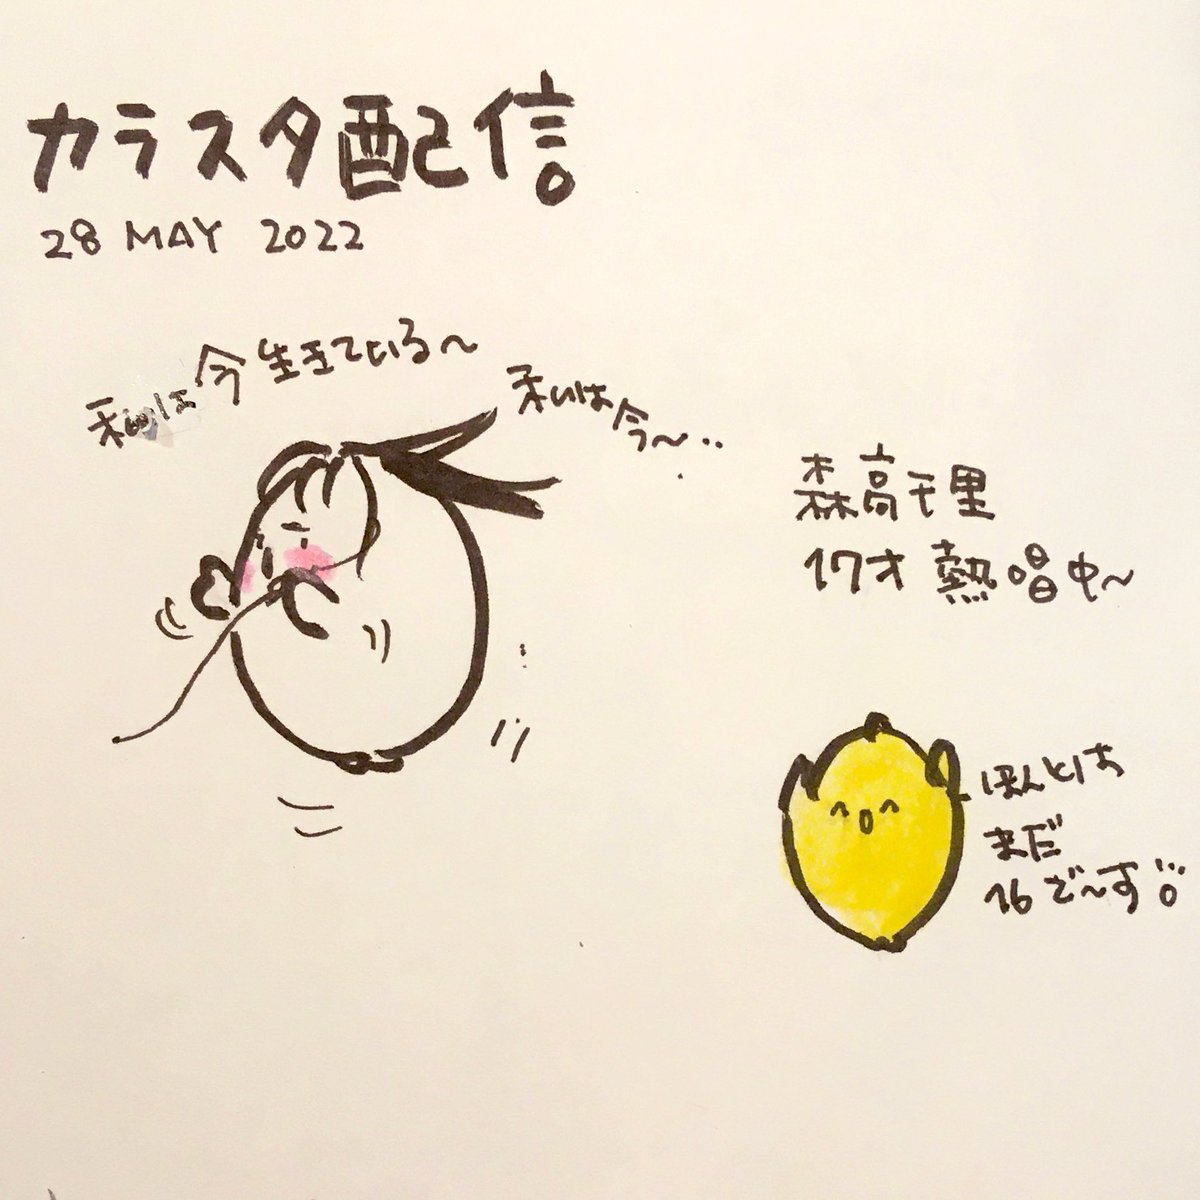 カラスタ配信
28 MAY 2022
私は今生きている〜
私は今〜‥
森高千里
17才 熱唱中〜
ほんとは
まだ
16で〜す